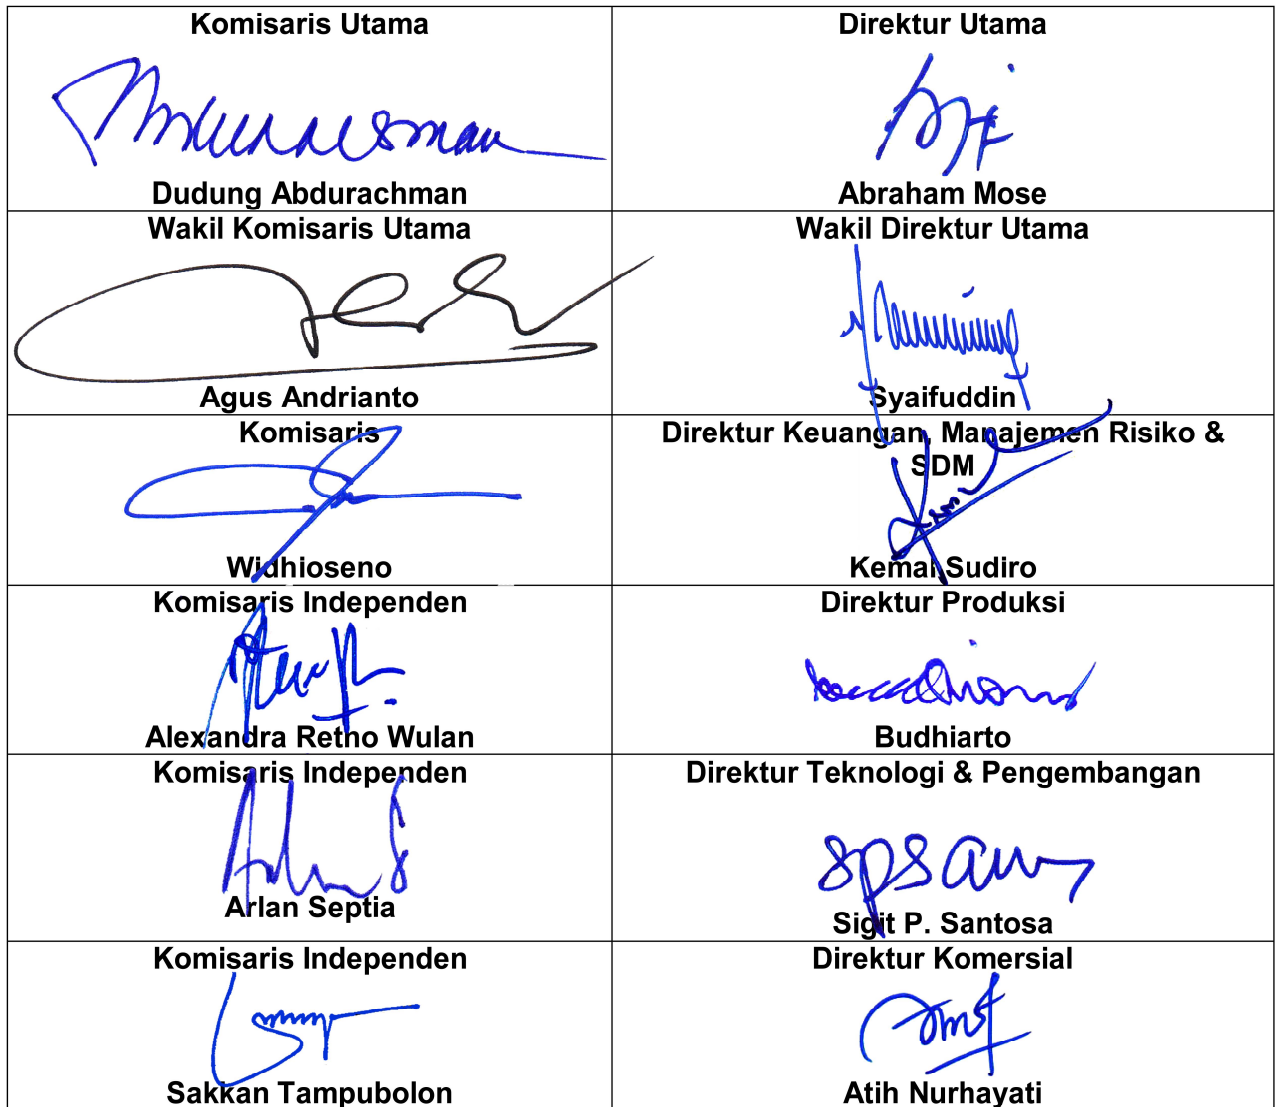 Komisaris Utama
Dudung Abdurachman
Direktur Utama
Abraham Mose
Wakil Komisaris Utama
Agus Andrianto
Wakil Direktur Utama
Syaifuddin
Komisaris
Widhioseno
Direktur Keuangan, Manajemen Risiko &
SDM
Kemal Sudiro
Komisaris Independen
Alexandra Retno Wulan
Direktur Produksi
Budhiarto
Komisaris Independen
Arlan Septia
Direktur Teknologi & Pengembangan
Sigit P. Santosa
Komisaris Independen
Sakkan Tampubolon
Direktur Komersial
Atih Nurhayati